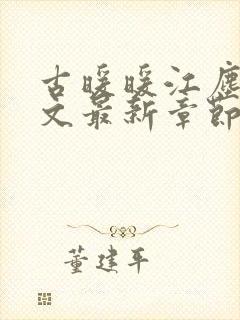 古暖暖江尘
文最新章节
董建平